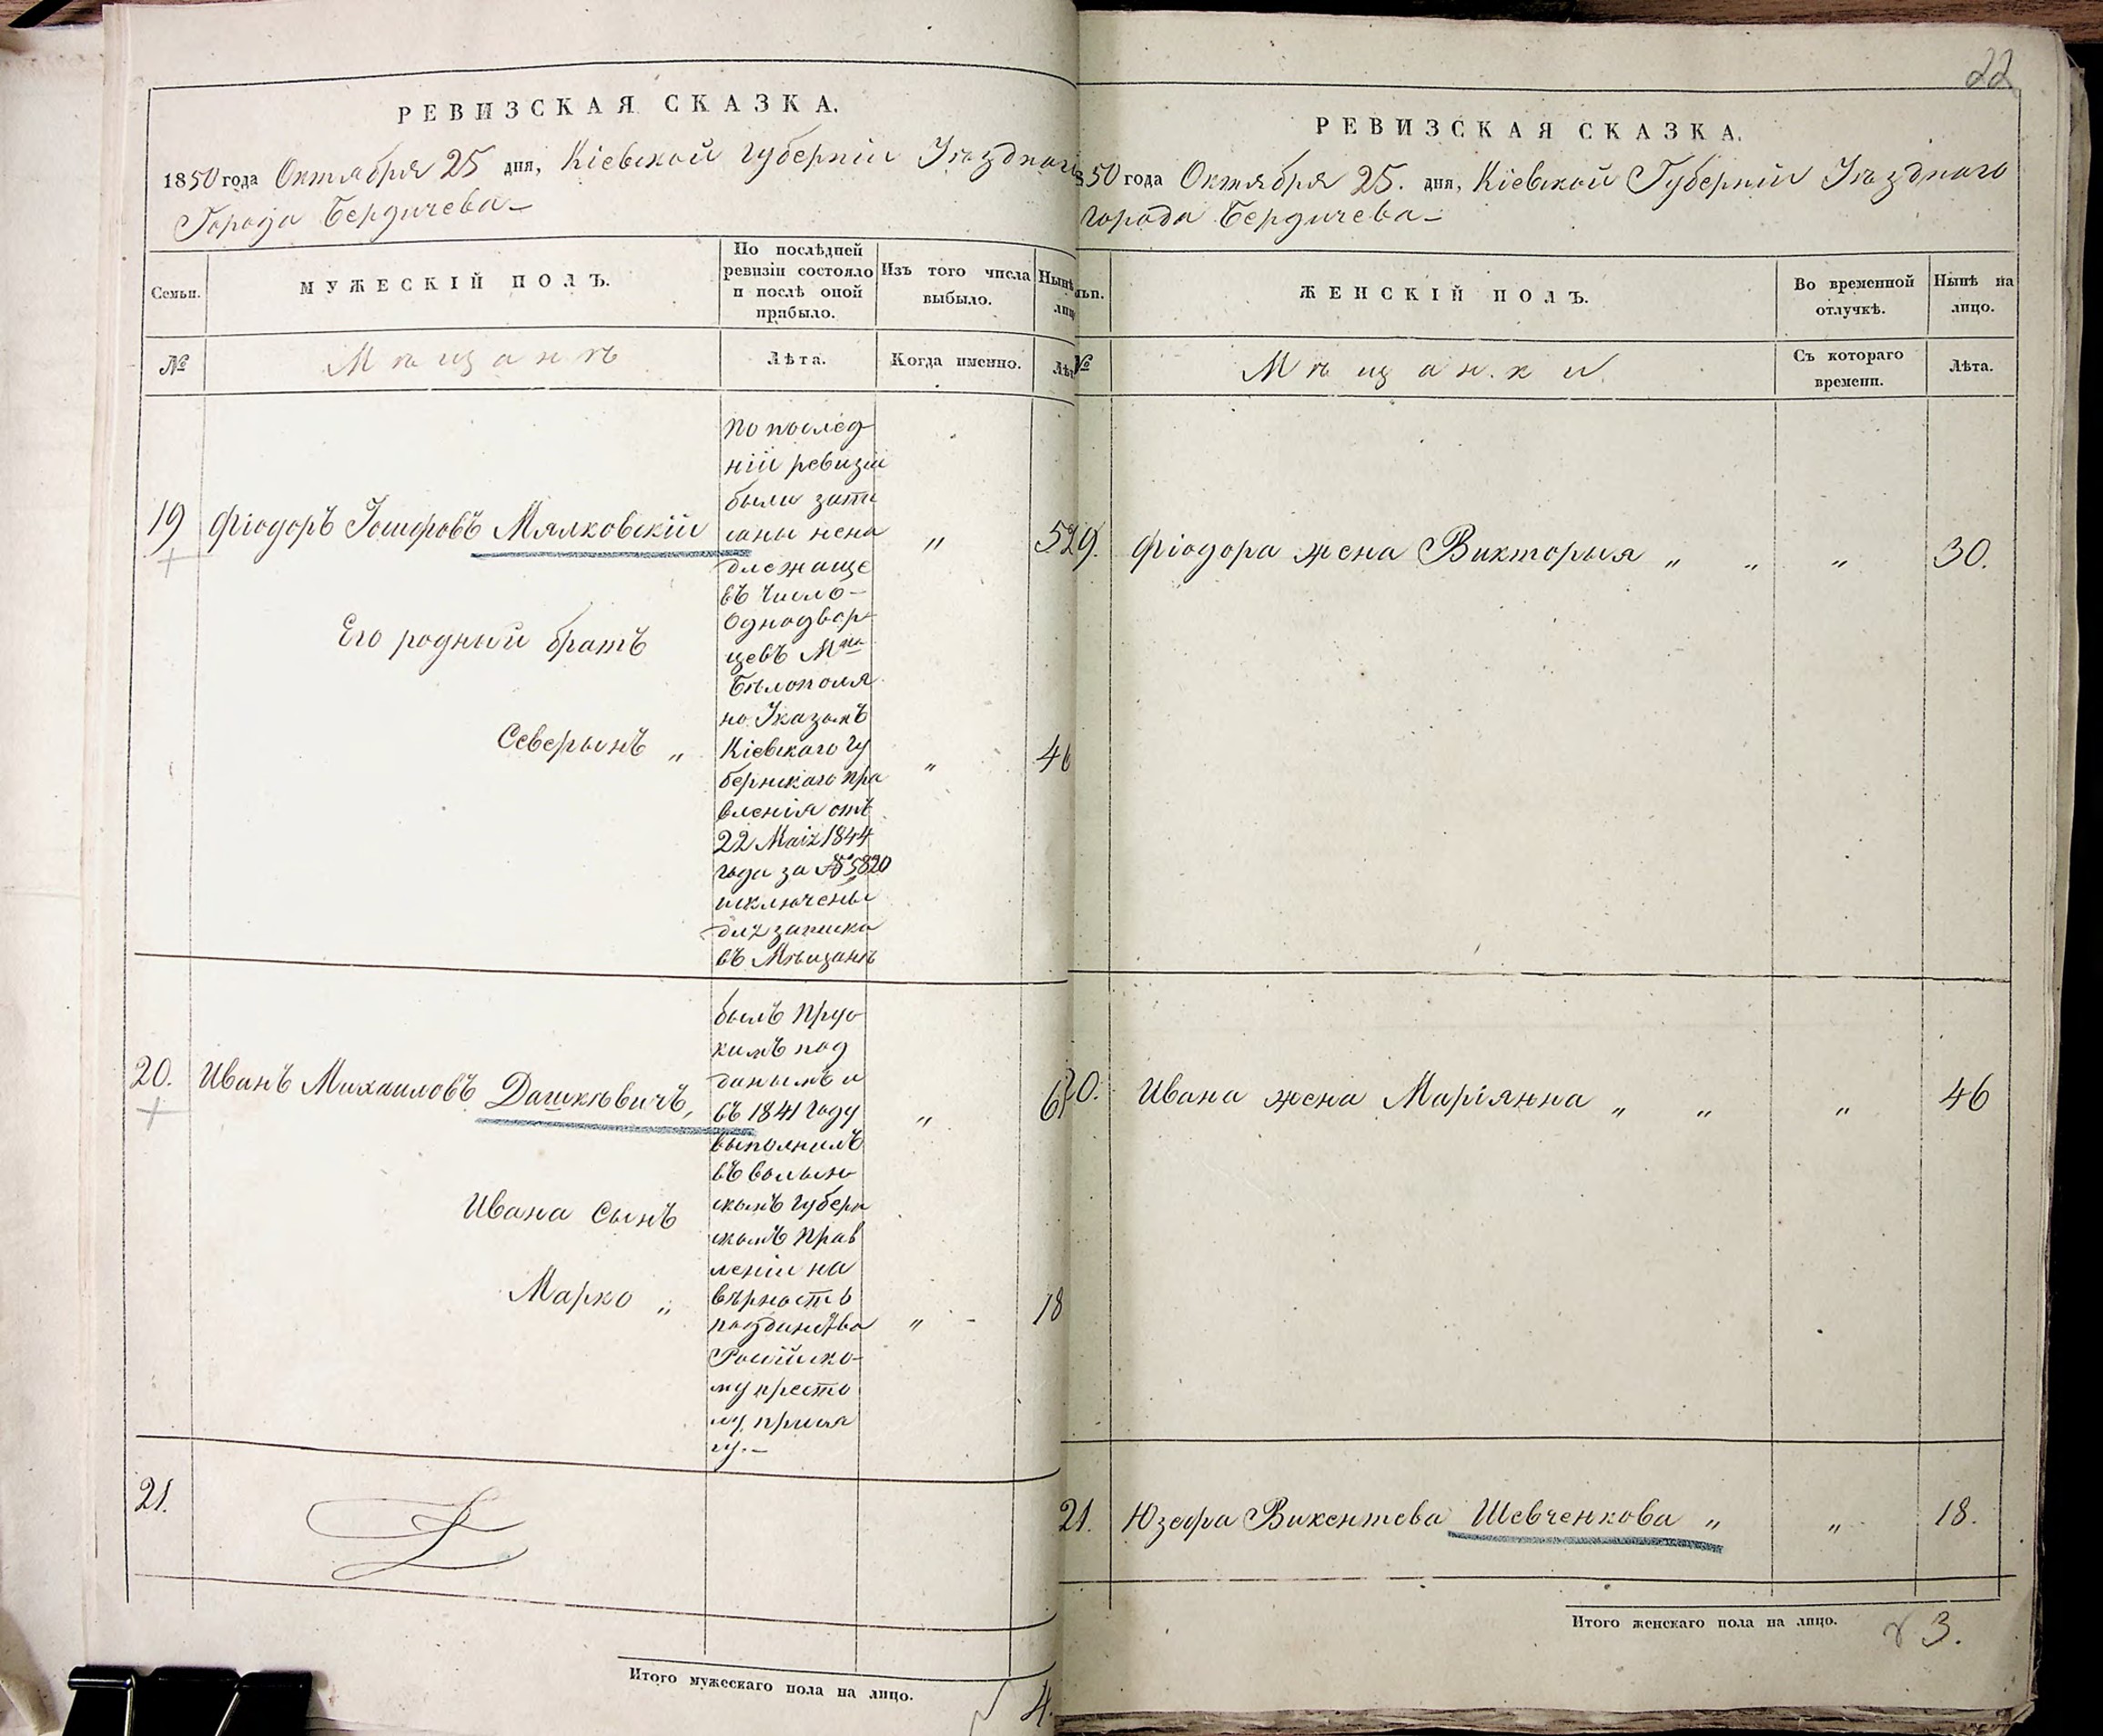 РЕВИЗСКАЯ СКАЗКА.
1850 года Октября 25 дня, Кіевской Губерніи Уѣзднаго
Города Бердичева
Семьи.
МУЖЕСКІЙ ПОЛЪ.
По послѣдней
ревизіи состояло
и послѣ оной
прибыло.
Изъ того числа
выбыло.
Нынѣ
лиц
№
Мѣщанѣ
Лѣта.
Когда именно.
Лѣт
19
Фіодоръ Іосифовъ Мялковскій
По послед
ній ревизіи
были запи
саны нена
длежаще
въ число
Однодвор
цевъ М^ка
Бѣлополя
но Указомъ
Кіевскаго Гу
бернскаго пра
вленія отъ
22 Маія 1844
года за № 5820
исключены
для записки
въ Мѣщанѣ
"
52
Его родный братъ
Северынъ "
"
46
20.
Иванъ Михаиловъ Дашкѣвичъ,
былъ Прус
кимъ под
данымъ и
въ 1841 году
выполнилъ
въ волын
скомъ Губерн
скомъ Прав
леніи на
вѣрность
подданства
Россійско-
му престо
лу прися
гу.
"
6
Ивана Сынъ
Марко "
"
18
21.
Итого мужескаго пола на лицо.
4.
22
РЕВИЗСКАЯ СКАЗКА.
850 года Октября 25. дня, Кіевской Губерніи Уѣзднаго
города Бердичева
ьи.
ЖЕНСКІЙ ПОЛЪ.
Во временной
отлучкѣ.
Нынѣ на
лицо.
№
Мѣщанки
Съ котораго
времени.
Лѣта.
19.
Фіодора жена Викторыя " "
"
30.
20.
Ивана жена Маріянна " "
"
46
21.
Юзефа Викентева Шевченкова "
"
18.
Итого женскаго пола на лицо.
3.